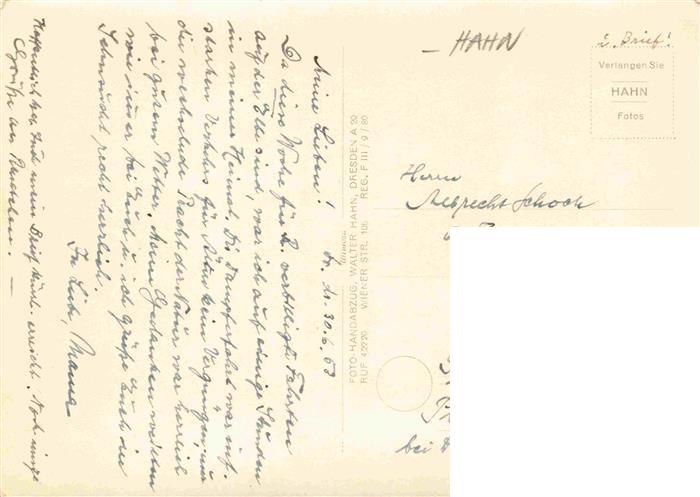 Meine Lieben! Dr. d. 30.6.63
Da diese Woche für R. verbilligte Fahrten
auf der Elbe sind, war ich auf einige Stunden
in meiner Heimat. Die Dampferfahrt war inf.
starken Verkehrs für Mutter kein Vergnügen, nur
die wechselnde Pracht der Natur war herrlich
bei gutem Wetter. Meine Gedanken weilten
wie immer bei Euch u. ich grüße Euch in
Sehnsucht recht herzlich.
In Liebe, Mama
Hoffentlich hat Euch mein Brief erreicht. Noch einige
Grüße an
FOTO-HANDABZUG, WALTER HAHN, DRESDEN A 20
RUF 42220 WIENER STR. 105 REG. F III / 9 / 80
– HAHN
i. Brief!
Verlangen Sie
HAHN
Fotos
Herrn
Albrecht Schoch
bei